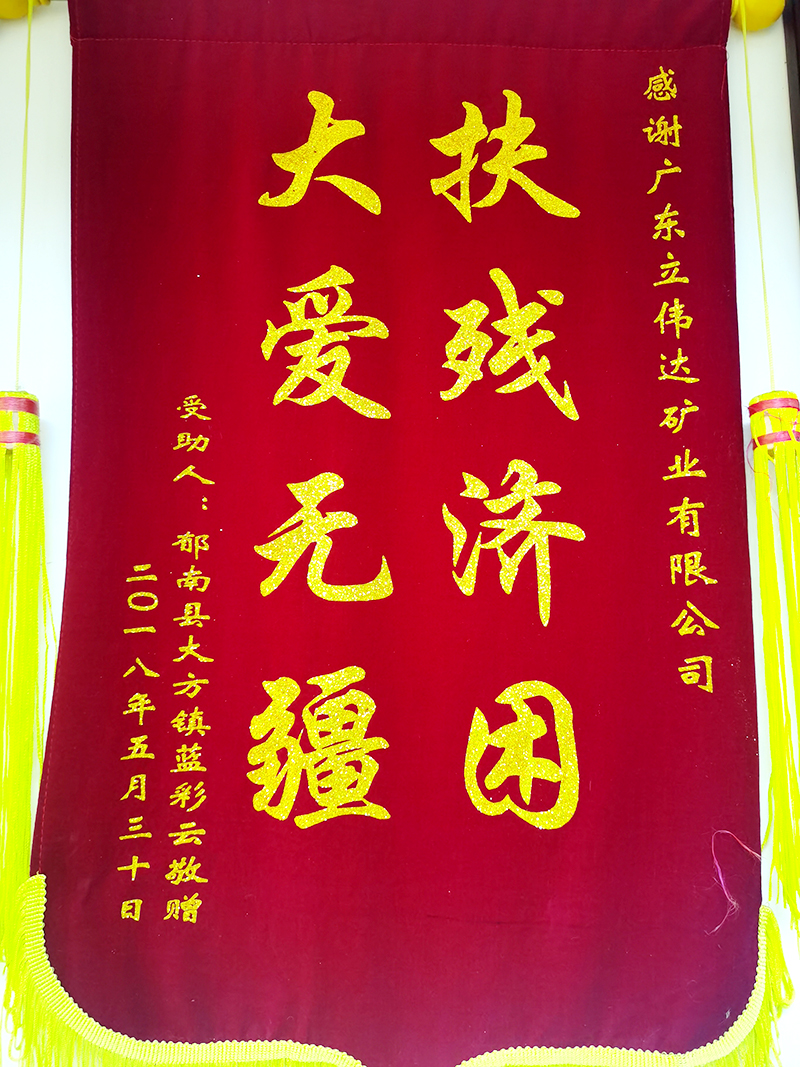 感谢广东立伟达矿业有限公司
扶残济困
大爱无疆
受助人：郁南县大方镇蓝彩云敬赠
二〇一八年五月三十日